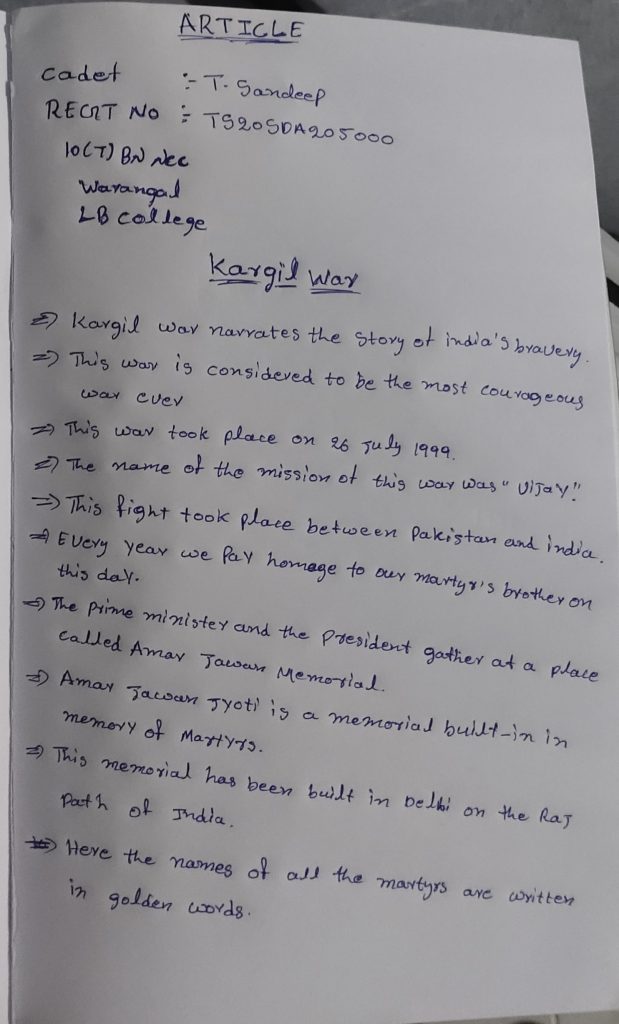 ARTICLE
cadet :- T. Sandeep
REGT NO :- TS20SDA205000
10(T) BN NCC
Warangal
LB college
Kargil War
=> Kargil war narrates the story of india's bravery.
=> This war is considered to be the most courageous
war ever
=> This war took place on 26 July 1999.
=> The name of the mission of this war was "Vijay".
=> This fight took place between Pakistan and india.
=> Every year we Pay homage to our martyr's brother on
this day.
=> The prime minister and the President gather at a place
called Amar Jawan Memorial.
=> Amar Jawan Jyoti is a memorial built-in in
memory of Martyrs.
=> This memorial has been built in Delhi on the Raj
Path of India.
=> Here the names of all the martyrs are written
in golden words.